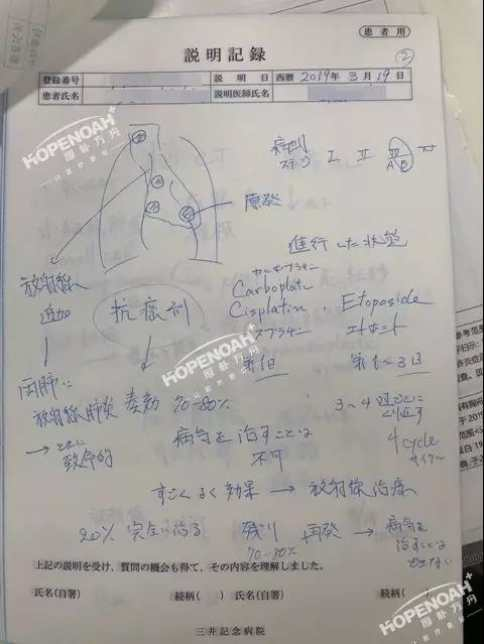 患者用
説明記録
②
登録番号 説明日 西暦 2019年 3月 19日
患者氏名 説明医師氏名
HOPENOAH+
病期
I II III 
A B
原発
進行した状態
放射線
追加
抗癌剤
カルボプラチン
Carboplatin
Cisplatin
シスプラチン
Etoposide
エトポシド
第1日
第1~3日
放射線肺炎
→
致命的
奏効 70-80%
3~4週ごとに
くり返す
4 cycle
サイクル
病気を治すことは
不可
HOPENOAH+
すごくよく効果 → 放射線治療
20% 完全に治る 残り 再発 → 病気を
治すことは
できない
70-80%
上記の説明を受け、質問の機会も得て、その内容を理解しました。
氏名(自署) 続柄( ) 氏名(自署) 続柄(
三井記念病院
HOPENOAH+